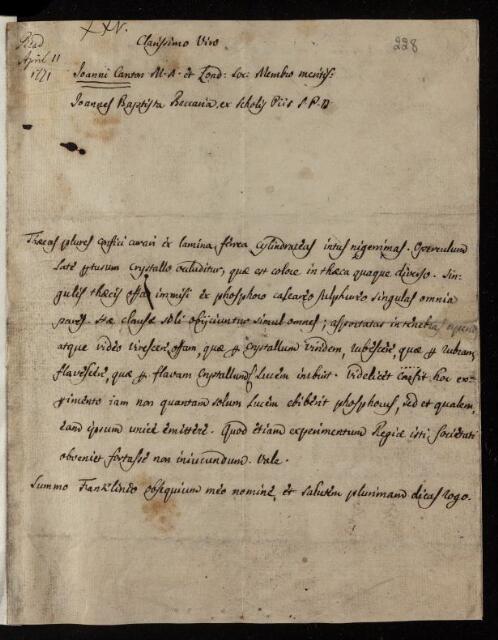 XXV.
228
Read
April 11
1771
Clarissimo Viro
Joanni Canton M. A. et Lond: Soc: Membro meritiss:
Joannes Baptista Beccaria, ex Scholis Piis S. P. D.
Thecas plures confici curavi ex lamina ferrea cylindraceas intus nigerrimas. Operculum
late ptusum crystallo occluditur, quæ est colore in theca quaque diverso. Sin-
gulis thecis offas immisi ex phosphoro calcareo sulphureo singulas omnia
pares. Hæ clausæ soli objiciuntur simul omnes; asportatas in tenebras
atque video virescere offam, quæ p crystallum viridem, rubescere, quæ p rubram,
flavescere, quæ p flavam crystallum lucem imbibit. Videlicet confit hoc ex-
pimento iam non quantam solum lucem ebiberit phosphorus, sed et qualem,
eam ipsum unice emittere. Quod etiam experimentum Regiæ isti Societati
obveniet fortasse non iniucundum. Vale.
Summo Franklineo obsequium meo nomine, et salutem plurimam dicas rogo.